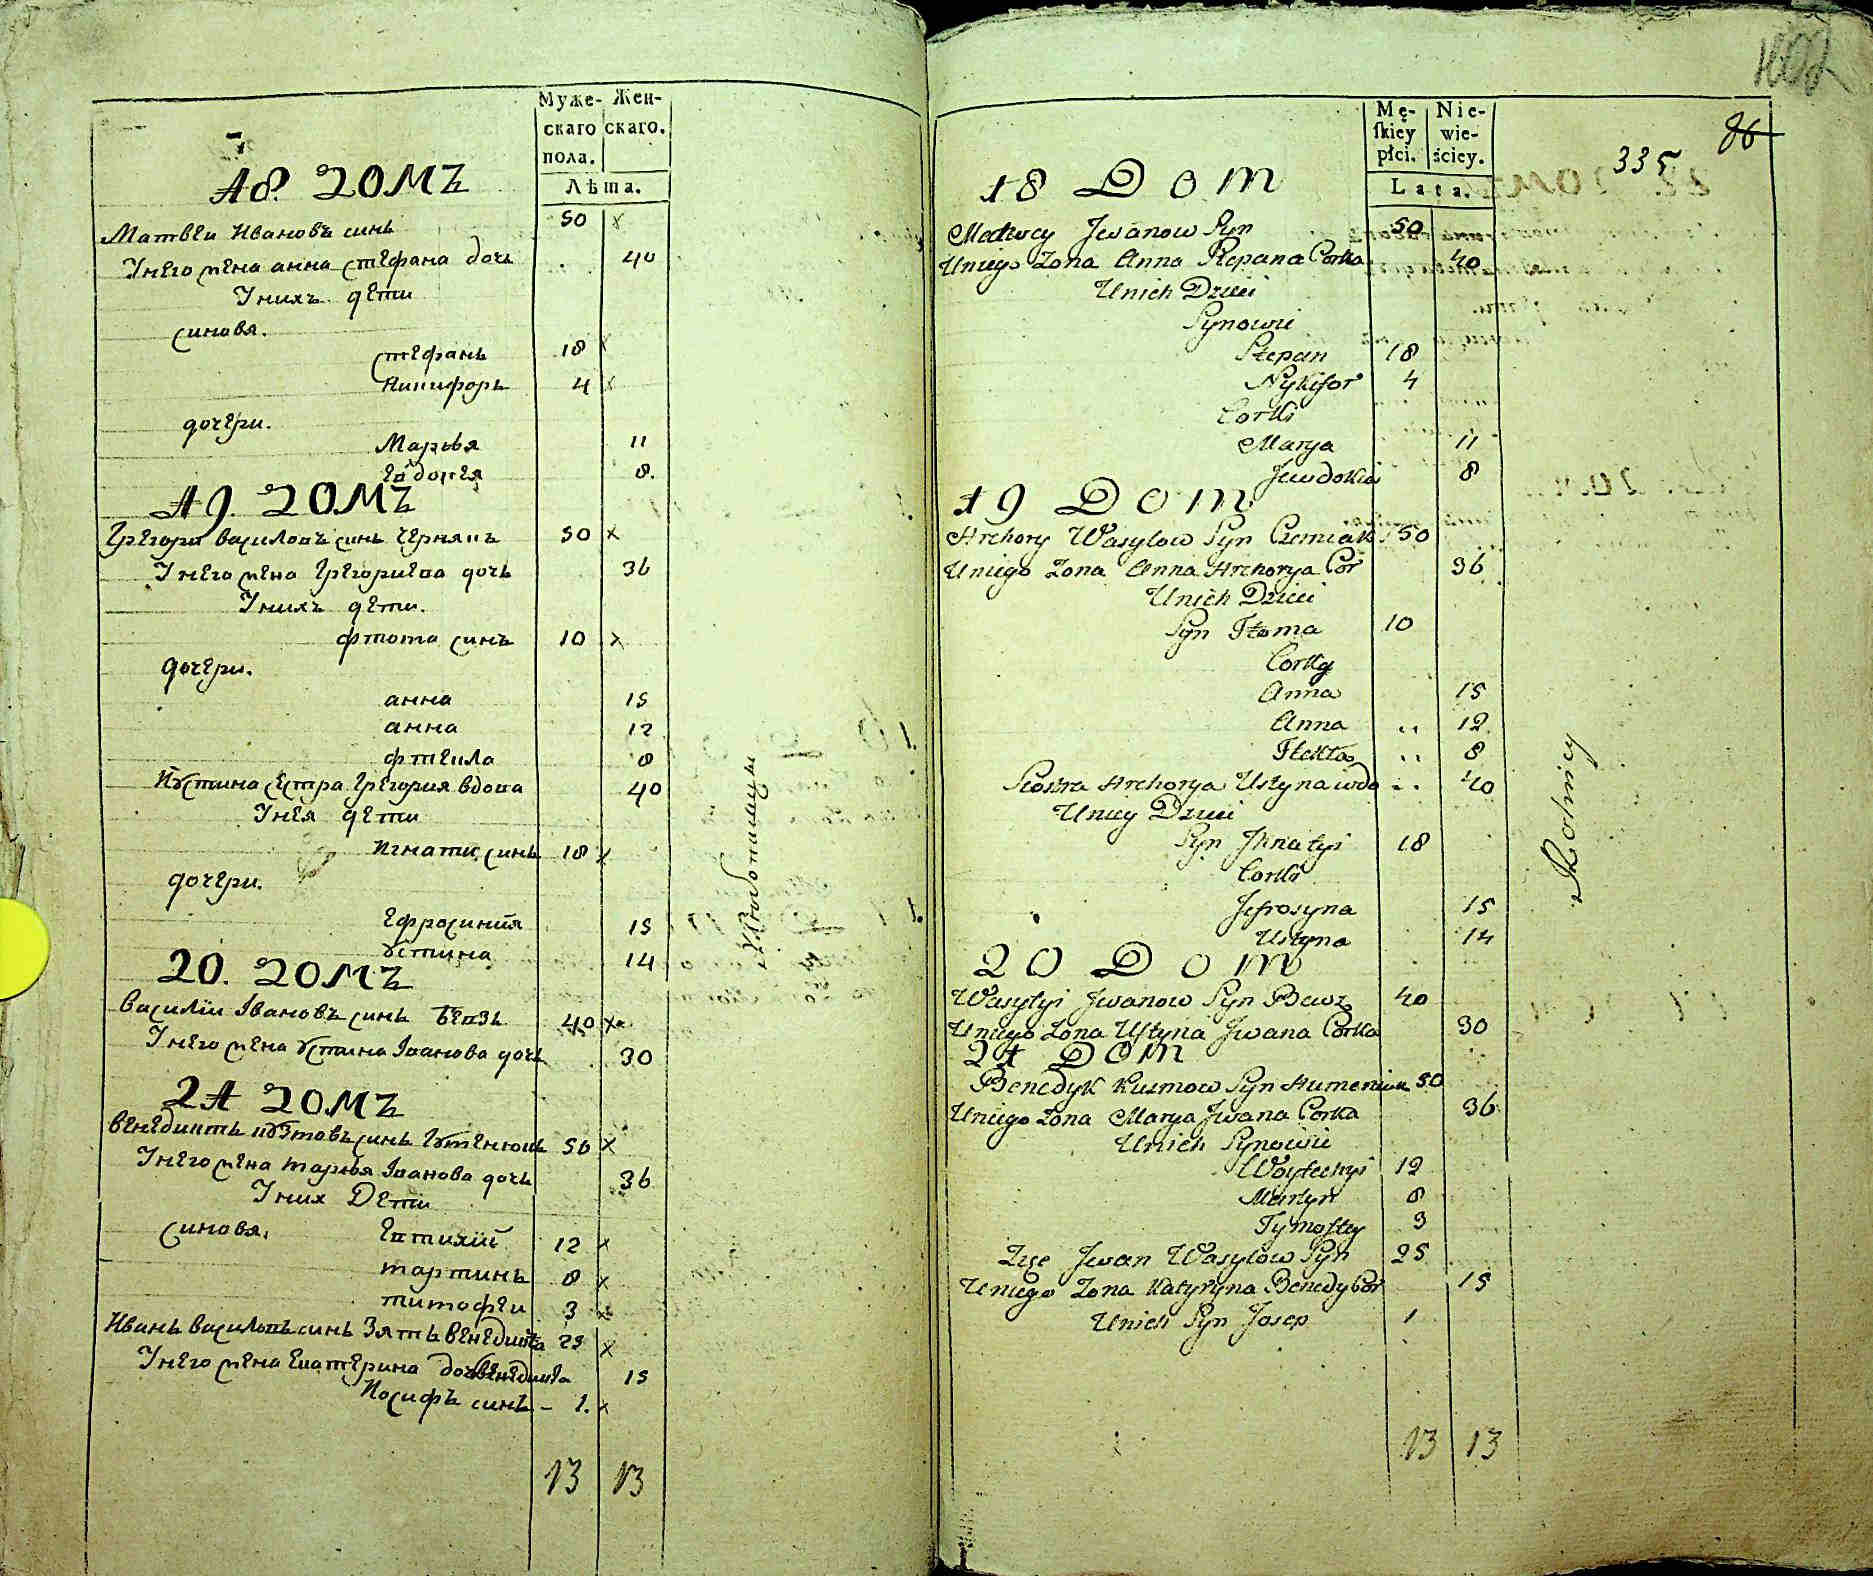 Муже- Жен-
скаго скаго.
пола.
Лѣта.
18. ДОМЪ
Матвеи Ивановъ синъ 50 x
У него жена анна стефана дочь 40
У нихъ дети
синовя.
стефанъ 18 x
Никифоръ 4 x
дочери.
Маръя 11
Евдокея 8.
19. ДОМЪ
Грегори василовъ синъ чернякъ 50 x
У него жена Грегориева дочь 36
У нихъ дети.
фтома синъ 10 x
дочери.
анна 15
анна 12
фтекла 8
Иустина сестра Грегория вдова 40
У нея дети
Игнати синъ 18 x
дочери.
Ефросиния 15
Устина 14
20. ДОМЪ
василіи Івановъ синъ 40 x
У него жена устина Іванова дочь 30
21 ДОМЪ
венедиктъ кузмовъ синъ Гуменюкъ 50 x
У него жена маръя Іванова дочь 36
У них Дети
синовя. Евтихій 12 x
мартинъ 8 x
тимофеи 3 x
Иванъ василовъ синъ Зятъ венедикта 25 x
У него жена Екатерина доч венедикта 15
Иосифъ синъ – 1. x
13 13
Хлебопашцы
1602
86
335
Mę- Nie-
skiey wie-
płci. ściey.
Lata.
18 Dom
Matwey Jwanow Syn 50
Uniego Zona Anna Stepana Corka 40
Unich Dzieci
Synowie
Stepan 18
Nykifor 4
Corki
Marya 11
Jewdokia 8
19 Dom
Hrehory Wasylow Syn Czerniak 50
Uniego Zona Anna Hrehorya Cor 36
Unich Dzieci
Syn Ftoma 10
Corky
Anna 15
Anna .. 12
Ftekla .. 8
Siostra Hrehorya Ustyna wdo .. 40
Uniey Dzieci
Syn Jhnatyi 18
Corki
Jefrosyna 15
Ustyna 14
20 Dom
Wasylyi Jwanow Syn 40
Uniego Zona Ustyna Jwana Corka 30
21 Dom
Benedyk Kuzmow Syn Humeniuk 50
Uniego Zona Marya Jwana Corka 36
Unich Synowie
12
Martyn 8
Tymoftey 3
Zięc Jwan Wasylow Syn 25
Uniego Zona Katyryna Benedy Cor 15
Unich Syn Josep 1
13 13
Rolnicy